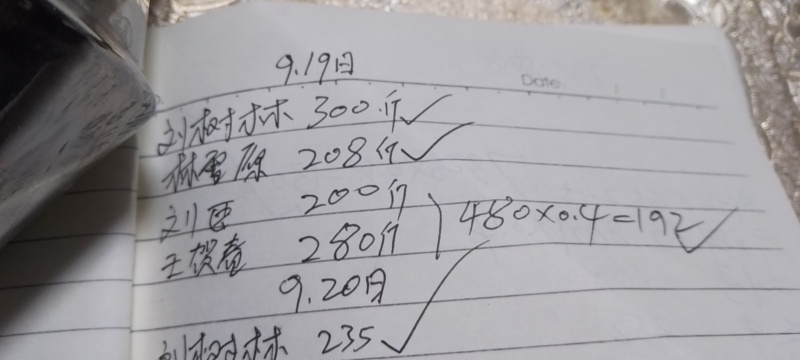 9.19日
Date:
刘树林 300斤✓
林雪原 208斤✓
刘西 200斤
王贺春 280斤 } 480×0.4=192✓
9.20日
刘树林 235✓